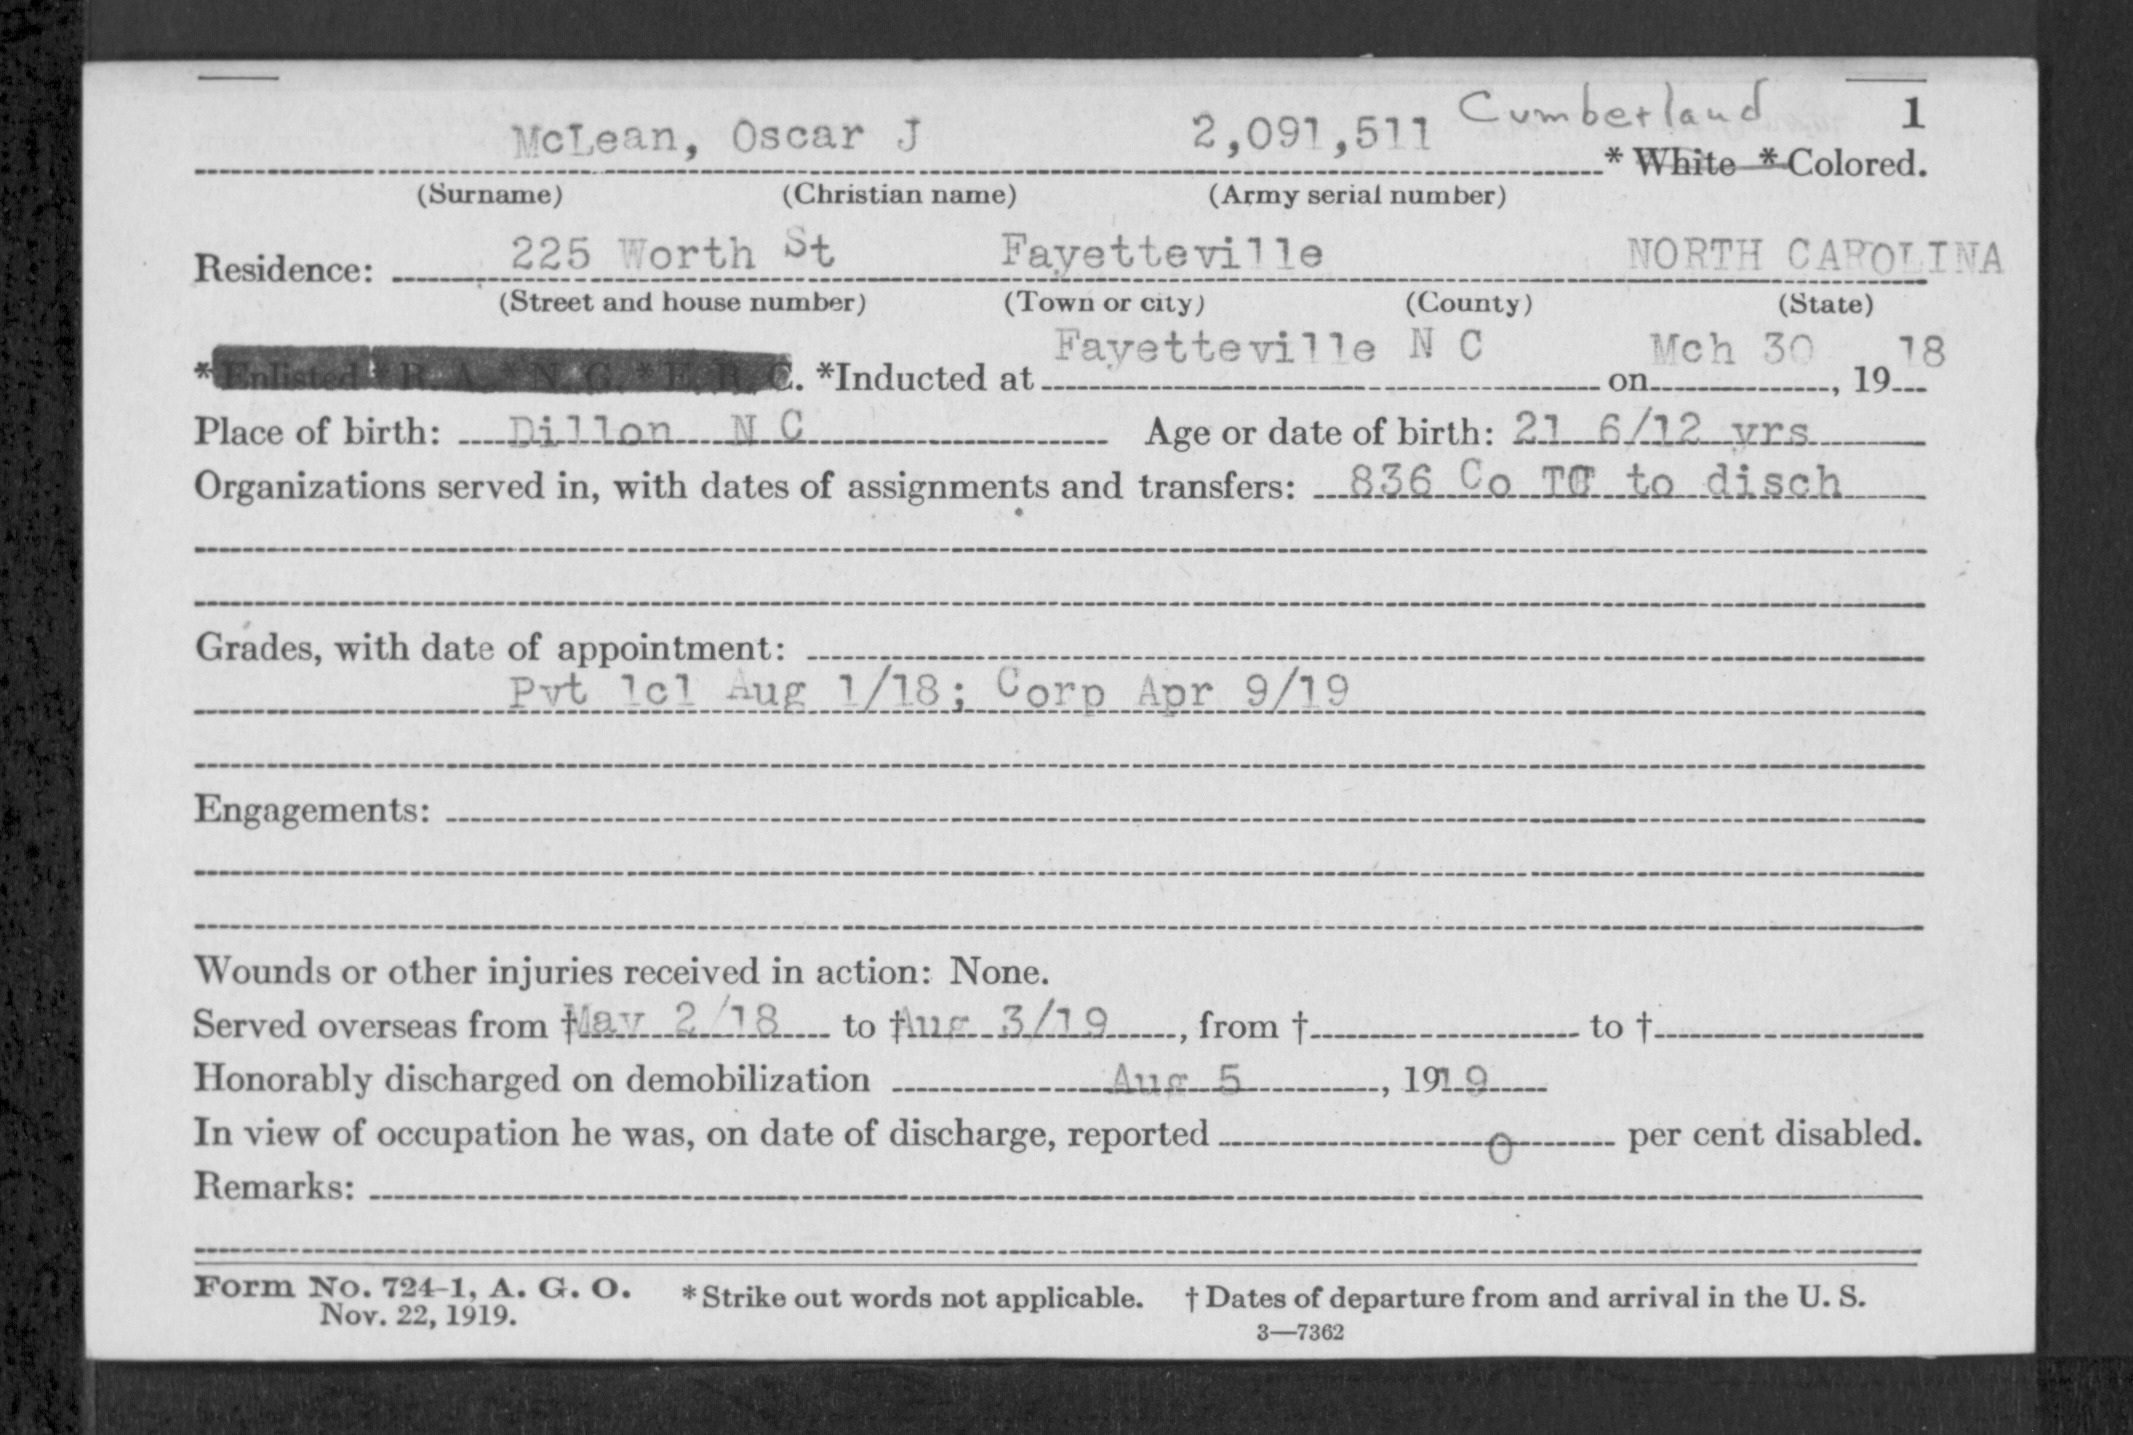 Cumberland 1
McLean, Oscar J 2,091,511 * White * Colored.
(Surname) (Christian name) (Army serial number)
Residence: 225 Worth St Fayetteville NORTH CAROLINA
(Street and house number) (Town or city) (County) (State)
*Enlisted * R. A. * N. G. * E. R. C. *Inducted at Fayetteville N C on Mch 30, 1918
Place of birth: Dillon N C Age or date of birth: 21 6/12 yrs
Organizations served in, with dates of assignments and transfers: 836 Co TC to disch
Grades, with date of appointment:
Pvt 1cl Aug 1/18; Corp Apr 9/19
Engagements:
Wounds or other injuries received in action: None.
Served overseas from † May 2/18 to † Aug 3/19, from † to †
Honorably discharged on demobilization Aug 5, 1919
In view of occupation he was, on date of discharge, reported 0 per cent disabled.
Remarks:
Form No. 724-1, A. G. O. * Strike out words not applicable. † Dates of departure from and arrival in the U. S.
Nov. 22, 1919.
3—7362